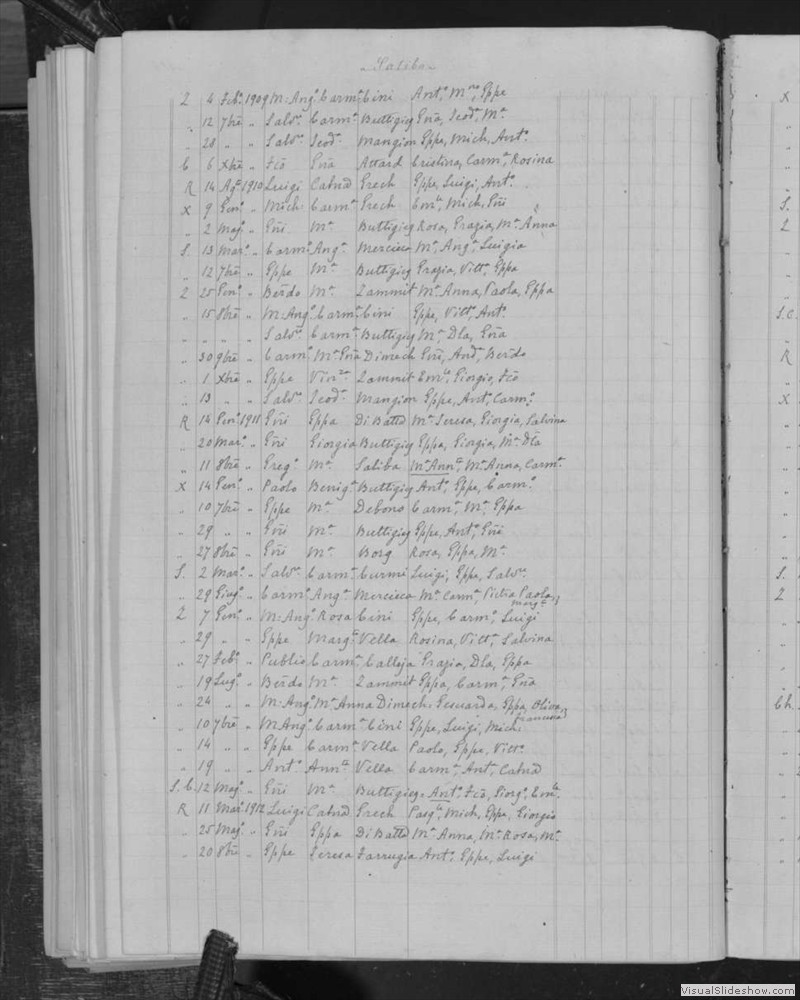 „ Saliba „
2 4 Feb.º 1909 M. Ang.º Carm.ª Cini Ant.º, M.ª, Eppe
„ 12 7bre „ Salv.e Carm.ª Buttigieg Gña, Teod.ª, M.ª
„ 28 „ „ Salv.e Teod.ª Mangion Eppe, Mich, Ant.º
C 6 Xbre „ Fcõ Gña Attard Cristina, Carm.ª, Rosina
R 14 Ag.º 1910 Luigi Catnd Grech Eppe, Luigi, Ant.º
X 9 Gen.º „ Mich. Carm.ª Grech Em.le, Mich, Gñi
„ 2 Mag.º „ Gñi M.ª Buttigieg Rosa, Grazia, M.ª Anna
S. 13 Mar.º „ Carm.º Ang.ª Mercieca M.ª, Ang.ª, Luigia
„ 12 7bre „ Eppe M.ª Buttigieg Grazia, Vitt.ª, Eppa
2 25 Gen.º „ Berdo M.ª Zammit M.ª Anna, Paola, Eppa
„ 15 8bre „ M. Ang.º Carm.ª Cini Eppe, Vitt.ª, Ant.º
„ „ „ „ Salv.e Carm.ª Buttigieg M.ª, Dla, Gña
„ 30 9bre „ Carm.º M.ª Gña Dimech Gñi, And.ª, Berdo
„ 1 Xbre „ Eppe Vin.za Zammit Em.le, Giorgio, Fcõ
„ 13 „ „ Salv.e Teod.ª Mangion Eppe, Ant.º, Carm.º
R 14 Gen.º 1911 Gñi Eppa Di Battd M.ª Teresa, Giorgia, Salvina
„ 20 Mar.º „ Gñi Giorgia Buttigieg Eppa, Giorgia, M.ª Dla
„ 11 8bre „ Greg.º M.ª Saliba M.ª Ann.ta, M.ª Anna, Carm.ª
X 14 Gen.º „ Paolo Benig.ª Buttigieg Ant.º, Eppe, Carm.º
„ 10 7bre „ Eppe M.ª Debono Carm.ª, M.ª, Eppa
„ 29 „ „ Gñi M.ª Buttigieg Eppe, Ant.º, Gñi
„ 27 8bre „ Gñi M.ª Borg Rosa, Eppa, M.ª
S. 2 Mar.º „ Salv.e Carm.ª Curmi Luigi, Eppe, Salv.e
„ 29 Giug.º „ Carm.º Ang.ª Mercieca M.ª Carm.ª Pietra Paola,
Marg.ta
2 7 Gen.º „ M. Ang.º Rosa Cini Eppe, Carm.º, Luigi
„ 29 „ „ Eppe Marg.ta Vella Rosina, Vitt.ª, Salvina
„ 27 Feb.º „ Publio Carm.ª Calleja Grazia, Dla, Eppa
„ 19 Lug.º „ Berdo M.ª Zammit Eppa, Carm.ª, Gña
„ 24 „ „ M. Ang.º M.ª Anna Dimech Gesuarda, Eppa, Oliva,
Francesca
„ 10 7bre „ M. Ang.º Carm.ª Cini Eppe, Luigi, Mich.
„ 14 „ „ Eppe Carm.ª Vella Paolo, Eppe, Vitt.º
„ 19 „ „ Ant.º Ann.ta Vella Carm.ª, Ant.º, Catnd
S.C. 12 Mag.º „ Gñi M.ª Buttigieg Ant.º, Fcõ, Giorg.º, Em.le
R 11 Mar.º 1912 Luigi Catnd Grech Pasq.le, Mich, Eppe, Giorgio
„ 25 Mag.º „ Gñi Eppa Di Battd M.ª Anna, M.ª Rosa, M.ª
„ 20 8bre „ Eppe Teresa Farrugia Ant.º, Eppe, Luigi
VisualSlideshow.com